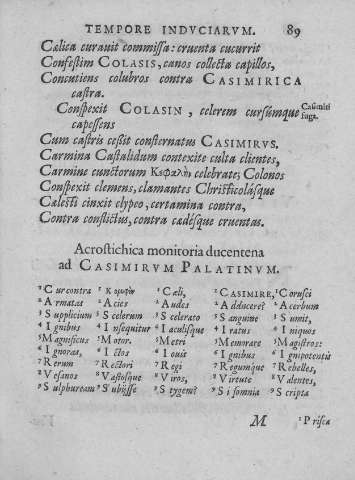 TEMPORE INDVCIARVM. 89
Cœlica curauit commissa: cruenta cucurrit
Confestim COLASIS, canos collecta capillos,
Concutiens colubros contra CASIMIRICA
castra.
Conspexit COLASIN, celerem cursúmque Casimiri
capessens fuga.
Cum castris cessit consternatus CASIMIRVS.
Carmina Castalidum contexite culta clientes,
Carmine cunctorum Κεφαλὴν celebrate; Colonos
Conspexit clemens, clamantes Christicolásque
Cælesti cinxit clypeo, certamina contra,
Contra conflictus, contra cædésque cruentas.
Acrostichica monitoria ducentena
ad CASIMIRVM PALATINVM.
1 Cur contra 1 Κοιρανὸν 1 Cæli, 1 CASIMIRE, 1 Corusci
2 Armatat 2 Acies 2 Audes 2 Adducere? 2 Acerbum
3 Supplicium 3 Scelerum 3 Scelerato 3 Sanguine 3 Sumit,
4 Ignibus 4 Insequitur 4 Iaculisque 4 Iratus 4 Iniquos
5 Magnificus 5 Motor. 5 Metri 5 Memorare 5 Magistros:
6 Ignoras, 6 Ictos 6 Iouis 6 Ignibus 6 Ignipotentis
7 Rerum 7 Rectori 7 Regi 7 Regumque 7 Rebelles,
8 Vesanos 8 Vastosque 8 Viros, 8 Virtute 8 Valentes,
9 Sulphuream 9 Subiisse 9 Stygem? 9 Si somnia 9 Scripta
M 1 Prisca